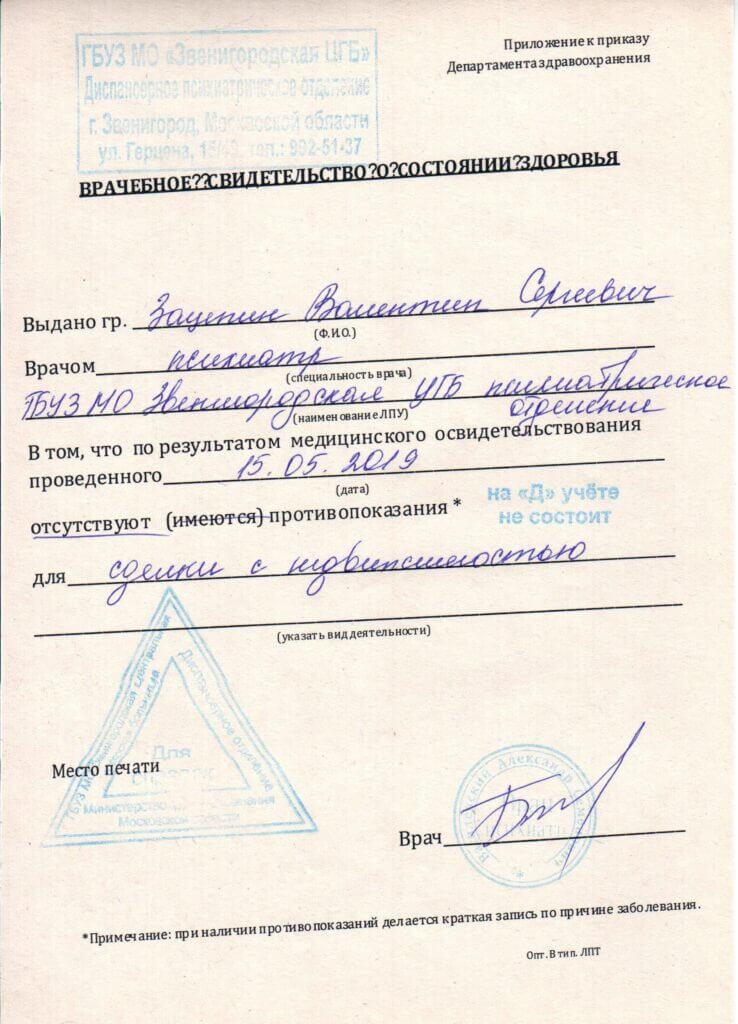 ГБУЗ МО «Звенигородская ЦГБ»
Диспансерное психиатрическое отделение
г. Звенигород, Московской области
ул. Герцена, тел.: 992-51-37
Приложение к приказу
Департамента здравоохранения
ВРАЧЕБНОЕ??СВИДЕТЕЛЬСТВО?О?СОСТОЯНИИ?ЗДОРОВЬЯ
Выдано гр. Зацепин Валентин Сергиевич
(Ф.И.О.)
Врачом психиатр
(специальность врача)
ГБУЗ МО Звенигородская ЦГБ психиатрическое
отделение
(наименование ЛПУ)
В том, что по результатом медицинского освидетельствования
проведенного 15.05.2019
(дата)
отсутствуют (имеются) противопоказания *
на «Д» учёте
не состоит
для сделки с недвижимостью
(указать вид деятельности)
ГБУЗ МО Звенигородская Центральная
Диспансерное отделение
Министерство
Московской области
Для
Место печати
Александр
Врач
*Примечание: при наличии противопоказаний делается краткая запись по причине заболевания.
Опт. В тип. ЛПТ